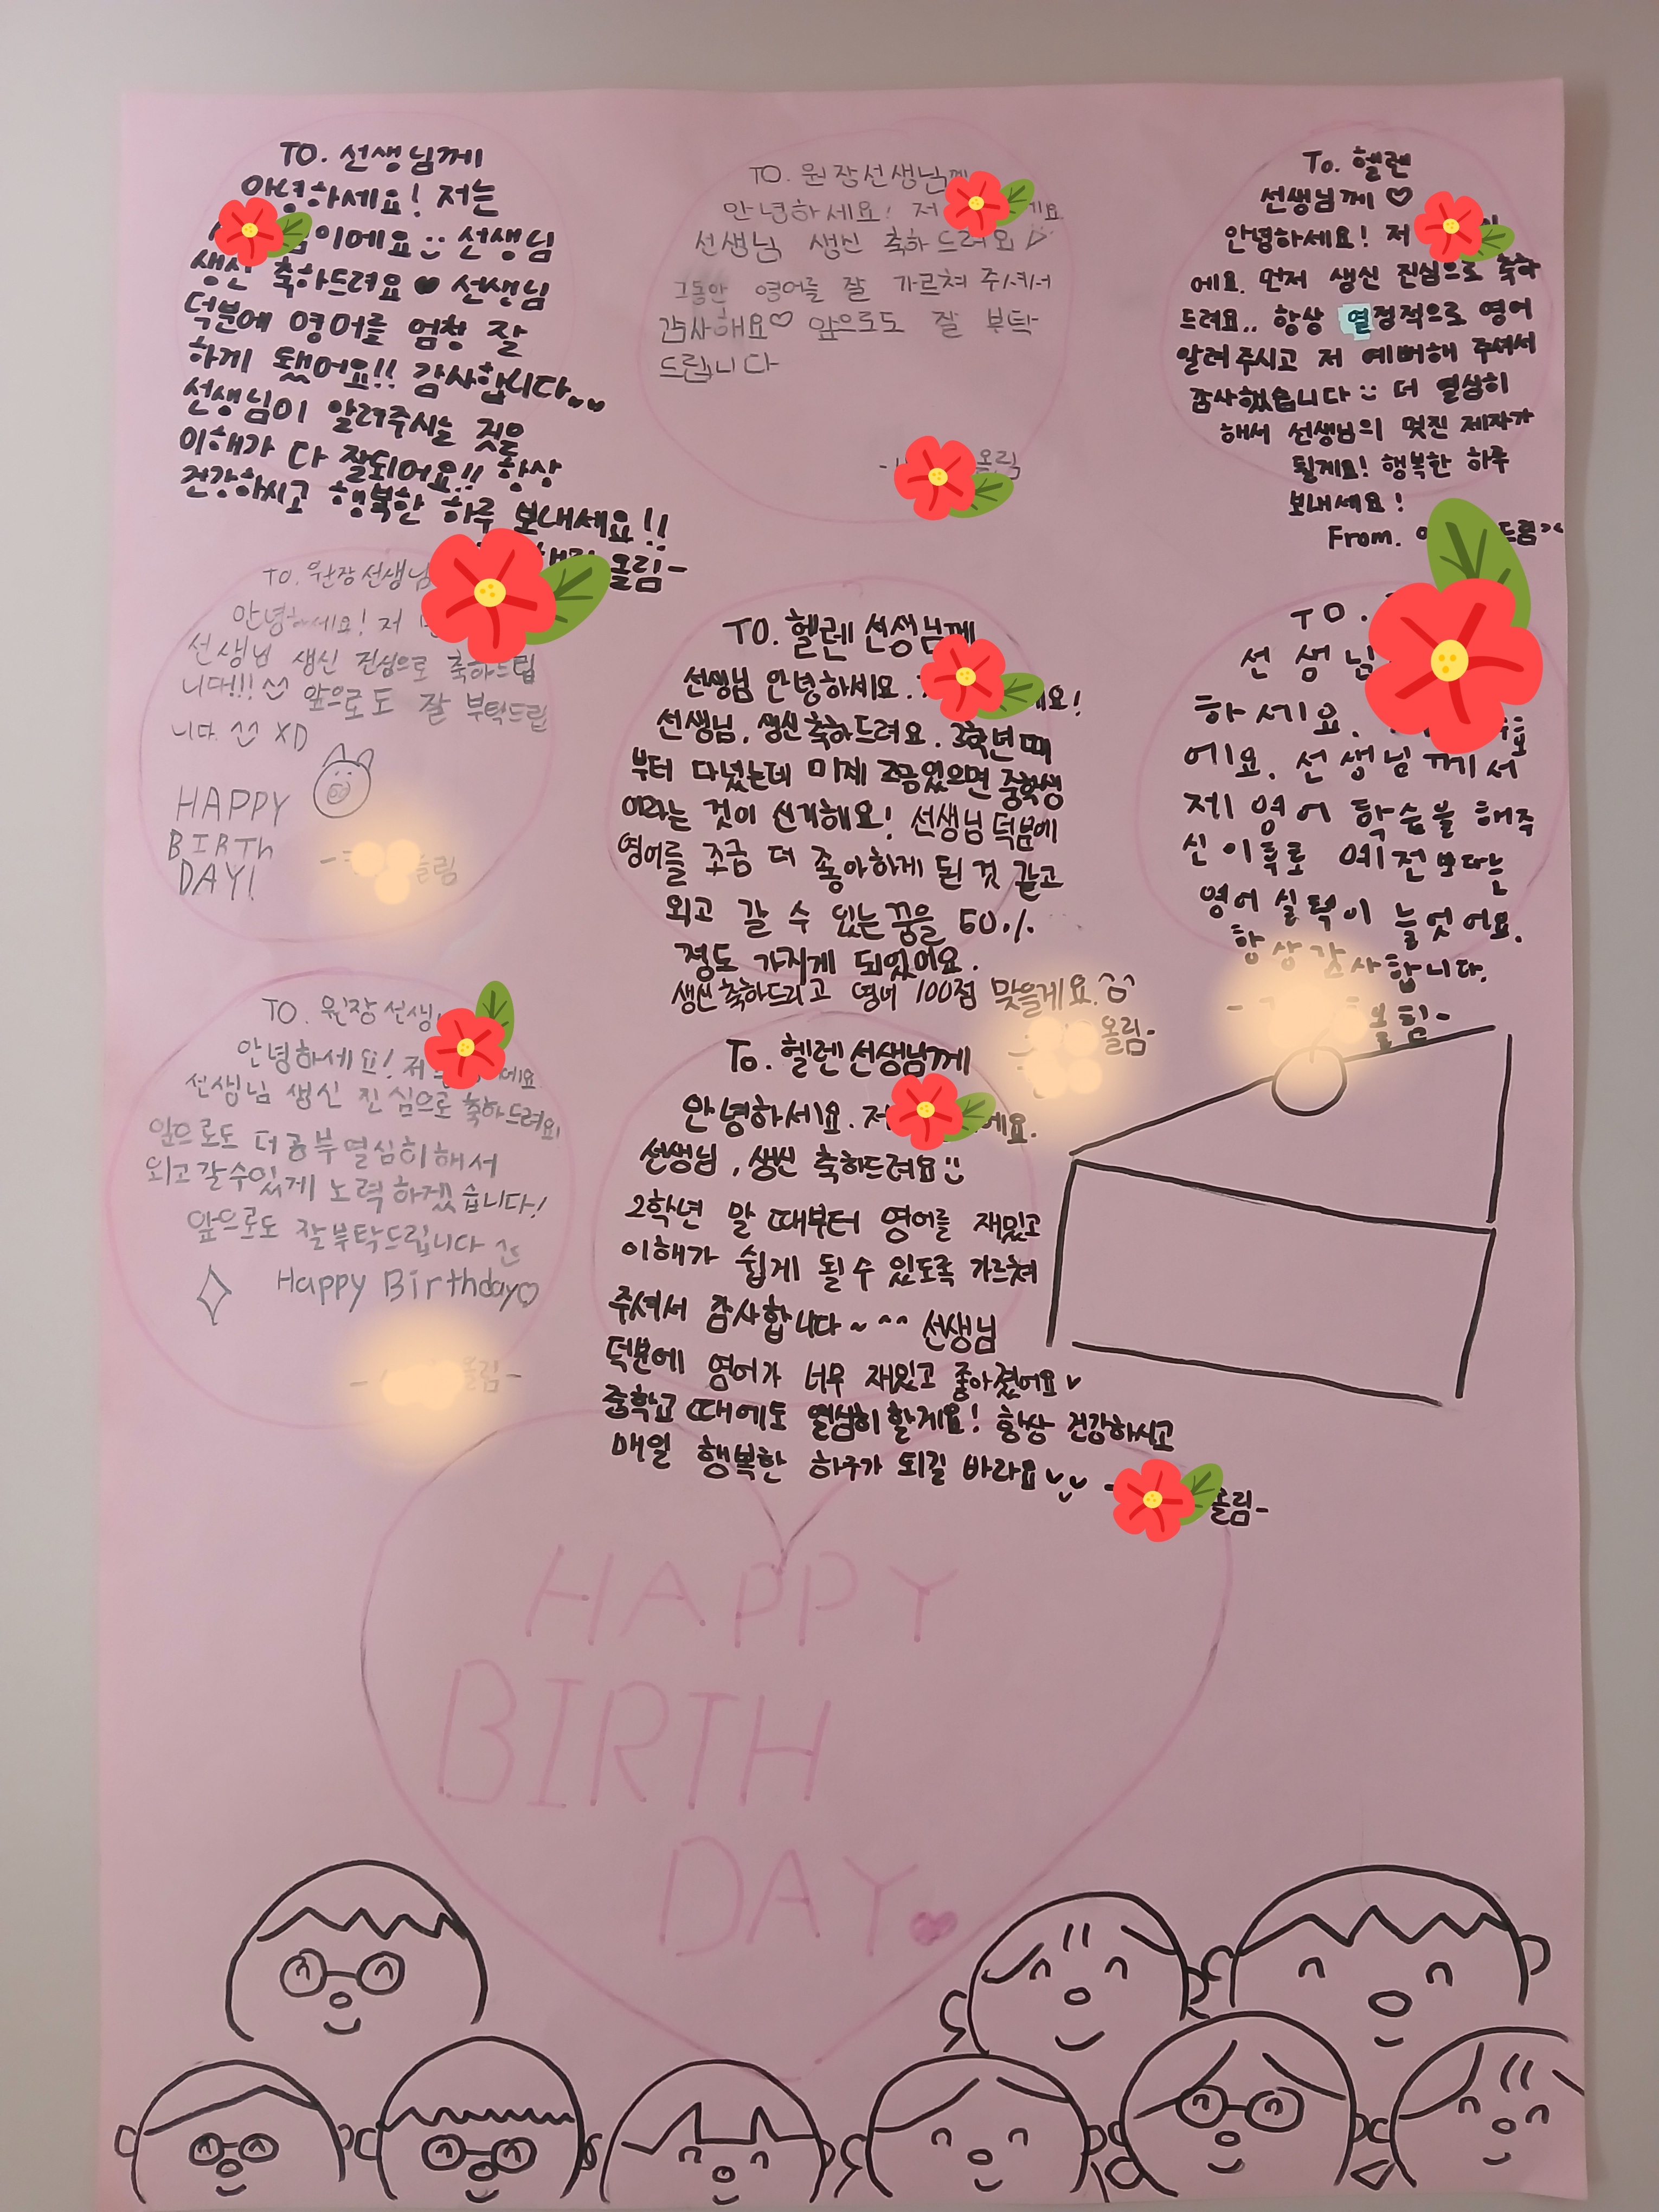 TO. 선생님께
안녕하세요! 저는
이에요 선생님
생신 축하드려요 ♥ 선생님
덕분에 영어를 엄청 잘
하게 됐어요!! 감사합니다
선생님이 알려주시는 것은
이해가 다 잘되어요!! 항상
건강하시고 행복한 하루 보내세요!!
올림-
TO. 원장선생님께
안녕하세요! 저
선생님 생신 축하드려요
그동안 영어를 잘 가르쳐 주셔서
감사해요♡ 앞으로도 잘 부탁
드립니다
올림
To. 헬렌
선생님께 ♡
안녕하세요! 저
에요. 먼저 생신 진심으로 축하
드려요.. 항상 열정적으로 영어
알려주시고 저 예뻐해 주셔서
감사했습니다 더 열심히
해서 선생님의 멋진 제자가
될게요! 행복한 하루
보내세요!
From. 드림><
TO. 원장선생님
안녕하세요! 저
선생님 생신 진심으로 축하드립
니다!!! ^^ 앞으로도 잘 부탁드립
니다. ^^ XD
HAPPY
BIRTh
DAY!
올림
TO. 헬렌선생님께
선생님 안녕하세요. 에요!
선생님, 생신축하드려요. 3학년때
부터 다녔는데 이제 조금있으면 중학생
이라는 것이 신기해요! 선생님덕분에
영어를 조금 더 좋아하게 된 것 같고
외고 갈 수 있는 꿈을 60%
정도 가지게 되었어요.
생신축하드리고 영어 100점 맞을게요.
올림-
TO.
선생님
하세요.
에요. 선생님께서
제 영어 학습을 해주
신 이후로 예전보다는
영어실력이 늘었어요.
항상감사합니다.
올림-
TO. 원장선생
안녕하세요! 저 에요
선생님 생신 진심으로 축하드려요!
앞으로도 더 공부 열심히 해서
외고 갈 수 있게 노력하겠습니다!
앞으로도 잘부탁드립니다
Happy Birthday♡
올림-
To. 헬렌선생님께
안녕하세요. 저 에요.
선생님, 생신 축하드려요
2학년 말 때부터 영어를 재밌고
이해가 쉽게 될 수 있도록 가르쳐
주셔서 감사합니다~ ^^ 선생님
덕분에 영어가 너무 재밌고 좋아졌어요
중학교때에도 열심히 할게요! 항상 건강하시고
매일 행복한 하루가 되길 바라요
올림-
HAPPY
BIRTH
DAY